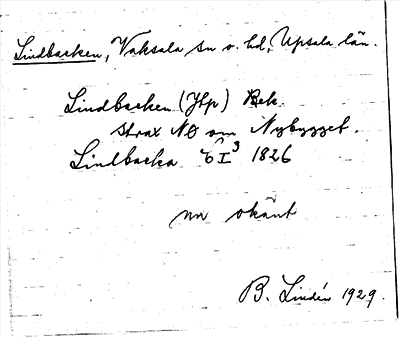 Lindbacken, Vaksala sn o. hd, Upsala län.
Lindbacken (Ytp) Bek.
strax NO om Nybygget.
Lindbacka EI³ 1826
nu okänt
B. Lindén 1929.